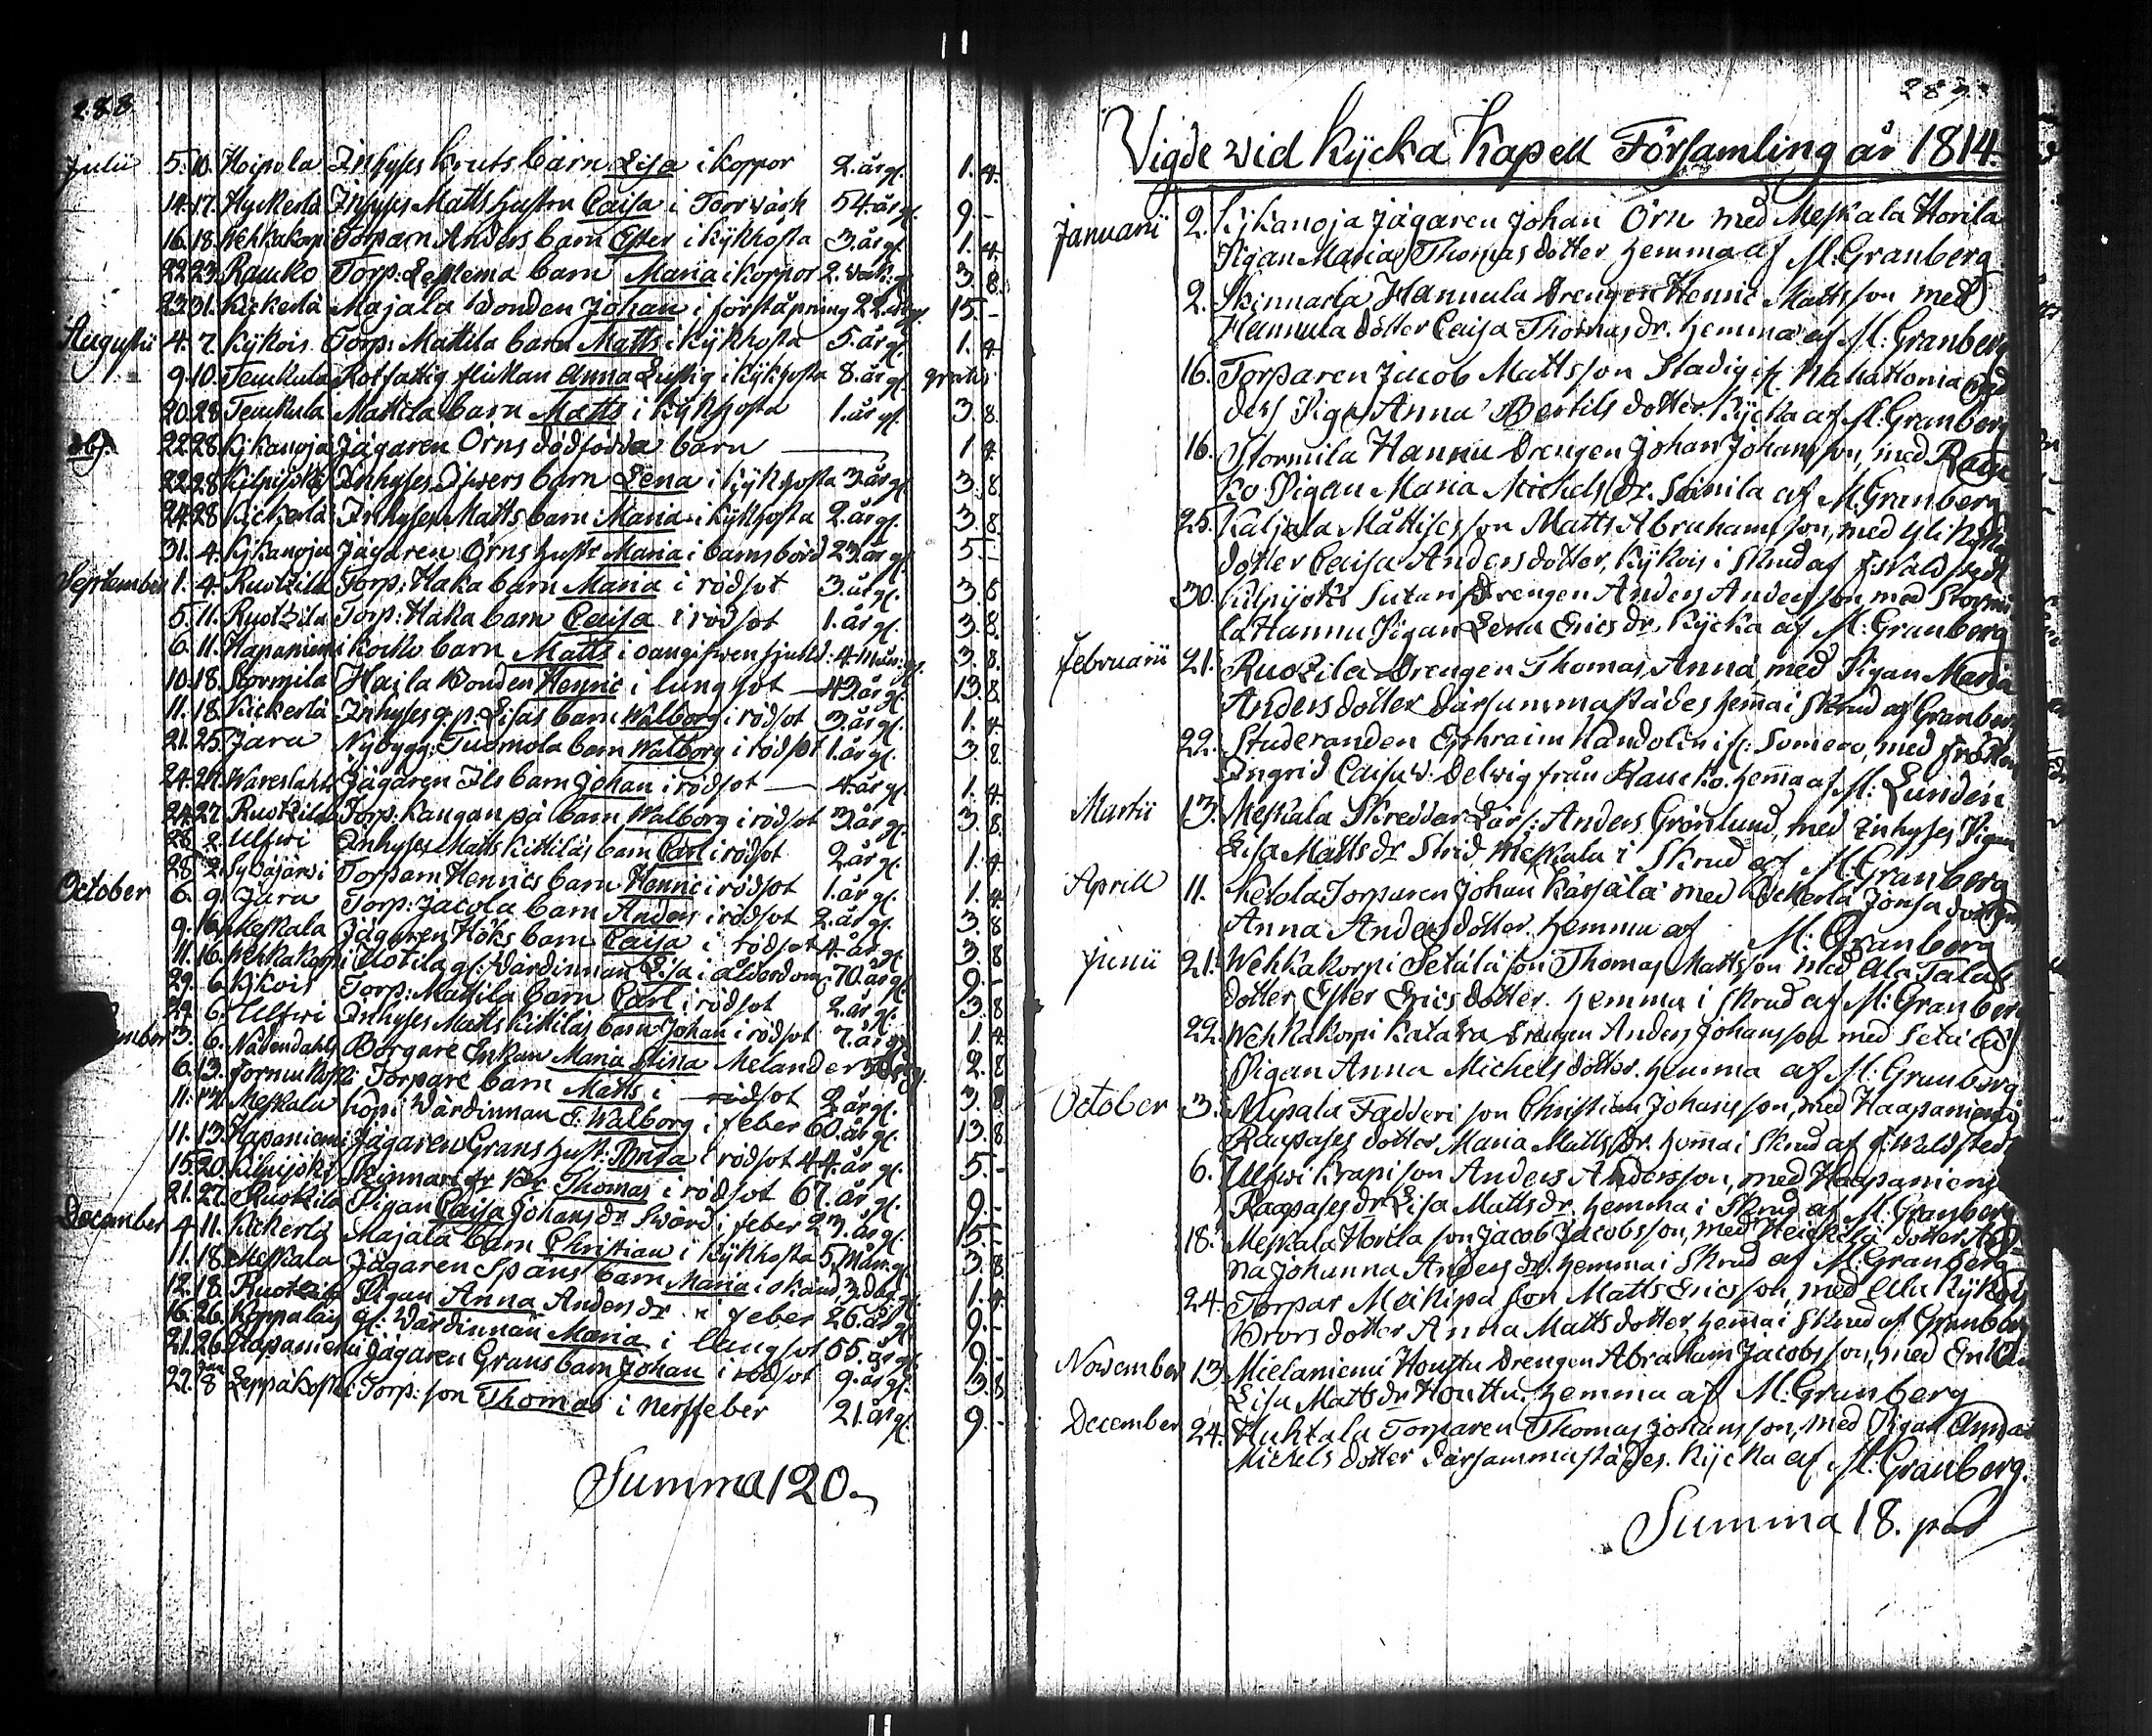 288
Julii 5. 10. Hoipola Inhyses Knuts barn Lisa i koppor 2. år gl. 1. 4.
14. 17. Kyckerlä Inhyses Matts hustru Caisa i Torrwärk 54. år gl. 9. -
16. 18. Wehkakorpi Torparn Anders barn Ester i kikhosta 3. år gl. 1. 4.
22. 23. Raucko Torp: barn Maria i koppor 2. wek: gl. 3. 8.
23. 31. Kickerlä Majala Bonden Johan i förstopning 22. år gl. 15. -
Augustii 4. 7. Kykois Torp: Mattila barn Matts i kykhosta 5. år gl. 1. 4.
9. 10. Teuckula Rotfattig flickan Anna Lustig i kykhosta 8. år gl. gratis
20. 28. Teuckula Mattila barn Matts i kykhosta 1. år gl. 3. 8.
obs. 22. 28. Kykanoja Jägaren Örns dödfödda barn 1. 4.
22. 28. Kilpijoki Inhyses Ifwers barn Lena i kykhosta 3. år gl. 3. 8.
24. 28. Kickerlä Inhyses Matts barn Maria i kykhosta 2. år gl. 3. 8.
31. 4. Kykanoja Jägaren Örns hustr Maria i barnsbörd 23. år gl. 5. -
September 1. 4. Ruotzila Torp: Haka barn Maria i rödsot 3. år gl. 3. 8
5. 11. Ruotzila Torp: Haka barn Caisa i rödsot 1. år gl. 3. 8.
6. 11. Hapaniemi Kocko barn Matts i oangifwen sjukd: 4. mån: gl. 3. 8.
10. 18. Stormila Hajla Bonden Henric i lungsot 43. år gl. 13. 8.
11. 18. Kickerlä Inhyses q: p: Lisas barn Walborg i rödsot 3. år gl. 1. 4.
21. 25. Jära Nybygg: Tuomola barn Walborg i rödsot 1. år gl. 3. 8
24. 27. Wareslahti Jägaren Ils barn Johan i rödsot 4. år gl. 1. 4.
24. 27. Ruotzila Torp: Kanganpä barn Walborg i rödsot 3. år gl. 3. 8.
28. 2. Ulfwi Inhyses Matts Kittiläs barn Carl i rödsot 2. år gl. 1. 4.
28. 2. Sywäjärwi Torparn Henrics barn Henric i rödsot 1. år gl. 1. 4.
October 6. 9. Jära Torp: Jacola barn Anders i rödsot 2. år gl. 3. 8
9. 16. Meskala Jägaren Höks barn Caisa i rödsot 4. år gl. 3. 8
11. 16. Wehkakorpi Uotila gl: Wärdinnan Lisa i ålderdom 70. år gl. 9. -
29. 6. Kykois Torp: Mattila barn Carl i rödsot 2. år gl. 3. 8
27. 6. Ulfwi Inhyses Matts Kittiläs barn Johan i rödsot 7. år gl. 1. 4.
3. 6. Nådendahls Borgare Enkan Maria Stina Melander 2. 8
6. 13. Torpare barn Matts i rödsot 2 år gl. 3. 8
11. 14. Meskala Wärdinnan E: Walborg i feber 60. år gl. 13. 8
11. 13. Hapaniemi Jägaren Grans hust: Brita i rödsot 44. år gl. 5. -
15. 20. Kilpijoki Skinnari Thomas i rödsot 67. år gl. 9. -
21. 27. Ruotzila Pigan Caisa Johans dr Swärd i feber 23. år gl. 15. -
December 4. 11. Kickerlä Majala barn Christian i kykhosta 5. mån. gl. 3. 8
11. 18. Meskala Jägaren Spans barn Maria i okänd, 3. dag. gl. 1. 4.
12. 18. Ruotzila Pigan Anna Anders dr i feber 26. år gl. 9. -
16. 26. Keppalais gl: Wärdinnan Maria i lungsot 55. år gl. 9. -
21. 26. Hapaniemi Jägaren Grans barn Johan i rödsot 9. år gl. 3. 8
27. Jan 8 Leppäkoski Torp: son Thomas i nerffeber 21. år gl. 9. -
Summa 120.
289.
Vigde wid Kycka Kapell Församling år 1814.
Januarii 2. Kykanoja Jägaren Johan Örn med Meskala Horila
Pigan Maria Thomas dotter hemma af M: Granberg
2. Skinnarla Hannula Drengen Henric Mattsson med
Hannula dotter Caisa Thomas dr. hemma af M: Granberg
16. Torparen Jacob Mattsson Stadig if: Nahattoma med
ders Pigan Anna Bertils dotter. Kycka af M: Granberg
16. Stormila Hannu Drengen Johan Johansson, med Rau
ko Pigan Maria Michels dr. Simila af M. Granberg
25. Kaljala Måttises son Matts Abrahamsson, med
dotter Caisa Anders dotter, Kykois i Skrud af
30. Kilpijoki Sutan Drengen Anders Andersson med Stormi
la Hannu Pigan Lena Erics dr. Kycka af M: Granberg
Februarii 21. Ruozila Drengen Thomas Anná, med Pigan Maria
Anders dotter därsammastädes hemma i Skrud af Granberg
22. Studeranden Ephraim Handolin if: Somero, med fröken
Ingrid Caisa W: Delwig från Haucko. hemma af M: Lundén
Martii 13. Meskala Skreddar Lärs: Anders Grönlund, med Inhyses Pigan
Lisa Matts dr Strid. Meskala i Skrud af M. Granberg
Aprill 11. Ketola Torparen Johan Karjala med Kickerlä Jonsa dotter
Anna Anders dotter. hemma af M: Granberg
Junii 21. Wehkakorpi Setälä son Thomas Mattsson med Ala Talas
dotter Ester Erics dotter. hemma i Skrud af M: Granberg
22. Wehkakorpi Katara Drengen Anders Johansson med Setälä
Pigan Anna Michels dotter. hemma af M: Granberg
October 3. Nupala Fadderi son Christian Johansson, med Haapaniemi
Raapases dotter Maria Matts dr. hemma i Skrud af
6. Ulfwi Krapi son Anders Andersson, med Haapaniemi
Raapases dr Lisa Matts dr. hemma i Skrud af M: Granberg
18. Meskala Horila son Jacob Jacobsson, med Heickilä dotter
na Johanna Anders dr. hemma i Skrud af M: Granberg
24. Torpar Mäkipä son Matts Ericsson, med Ala Kykois
Brors dotter Anna Matts dotter, hemma i Skrud af Granberg
November 13. Mielaniemi Houttu Drengen Abraham Jacobsson, med Enkan
Lisa Matts dr Houttu. hemma af M: Granberg
December 24. Huhtala Torparen Thomas Johansson, med Pigan Anna
Michels dotter därsammastädes. Kycka af M: Granberg.
Summa 18. par